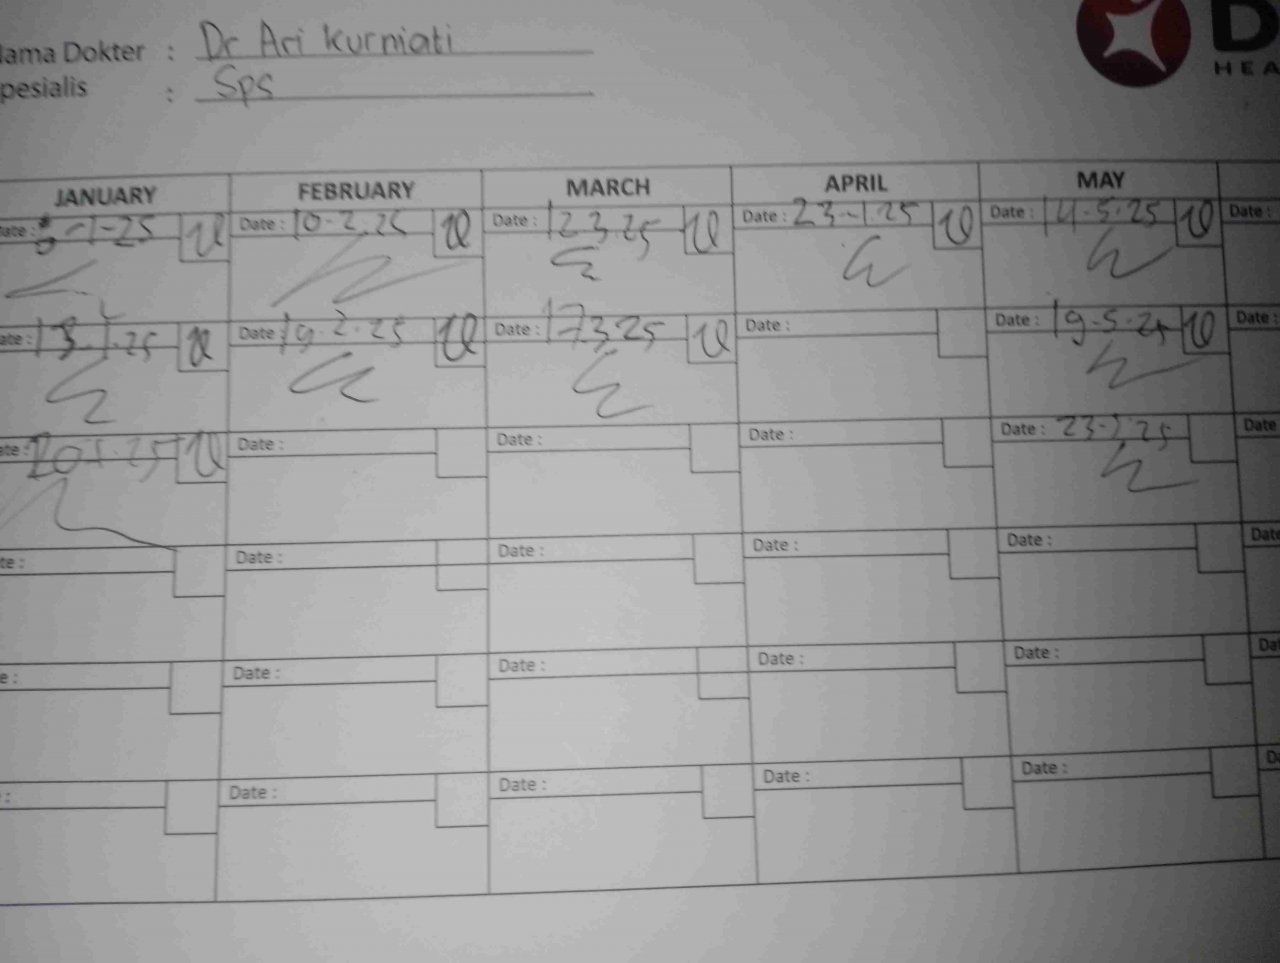 Nama Dokter : Dr Ari Kurniati
Spesialis : Sps
D
HEA
JANUARY FEBRUARY MARCH APRIL MAY
Date : -1-25 Date : 10-2.25 Date : 12 3 25 Date : 23-1.25 Date : 14.5.25 Date :
Date : 13.1.25 Date : 19.2.25 Date : 17 3 25 Date : Date : 19.5.25 Date :
Date : 20.1.25 Date : Date : Date : Date : 23-5.25 Date
Date : Date : Date : Date : Date : Date
Date : Date : Date : Date : Date : Da
: Date : Date : Date : Date : D